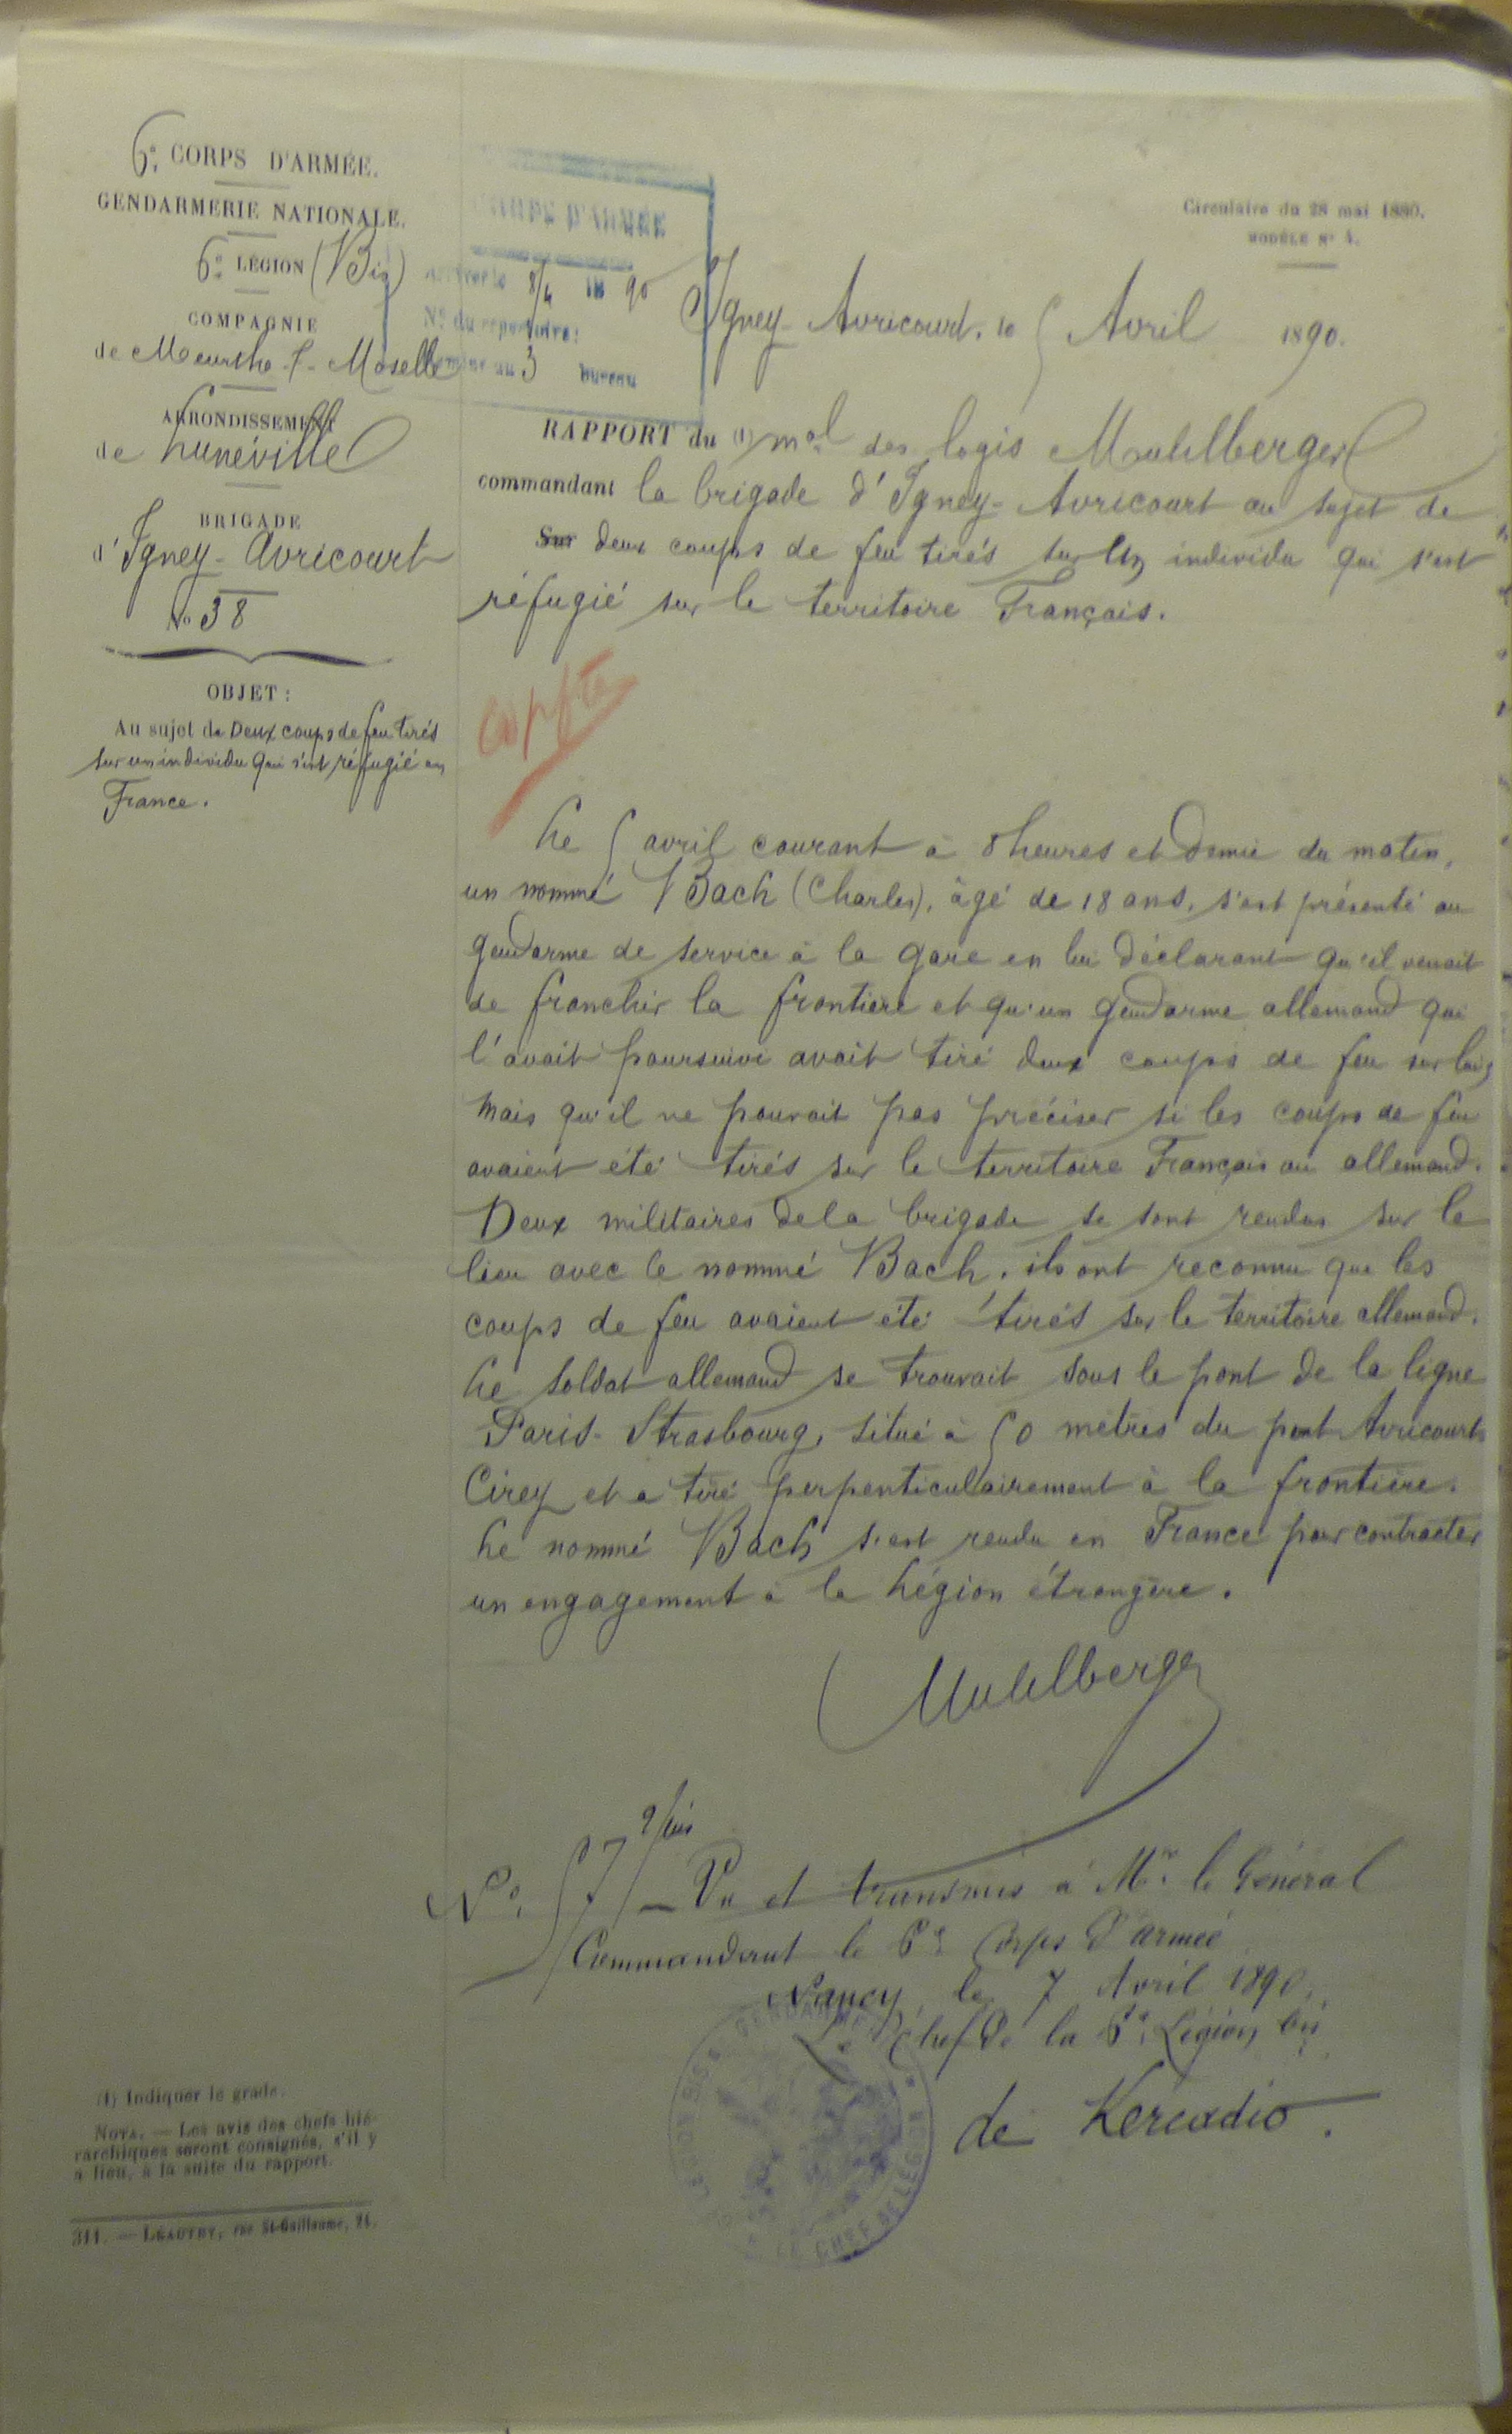 6e. CORPS D'ARMÉE.
GENDARMERIE NATIONALE.
6e. LÉGION (Bis)
COMPAGNIE
de Meurthe-&-Moselle
ARRONDISSEMENT
de Lunéville
BRIGADE
d'Igney-Avricourt
No 38
OBJET :
Au sujet de Deux coups de feu tirés
sur un individu qui s'est réfugié en
France.
CORPS D'ARMÉE
Arrivée le 8/4 18 90
No du répertoire:
au 3 bureau
Circulaire du 28 mai 1880.
MODÈLE No 4.
Igney-Avricourt, le 5 Avril 1890.
RAPPORT du (1) mal des logis Muhlberger
commandant la brigade d'Igney-Avricourt au sujet de
Sur deux coups de feu tirés sur un individu qui s'est
réfugié sur le territoire Français.
Copte
Le 5 avril courant à 8 heures et demie du matin,
un nommé Bach (Charles), âgé de 18 ans, s'est présenté au
gendarme de service à la gare en lui déclarant qu'il venait
de franchir la frontière et qu'un gendarme allemand qui
l'avait poursuivi avait tiré deux coups de feu sur lui,
mais qu'il ne pouvait pas préciser si les coups de feu
avaient été tirés sur le territoire Français ou allemand.
Deux militaires de la brigade se sont rendus sur le
lieu avec le nommé Bach, ils ont reconnu que les
coups de feu avaient été tirés sur le territoire allemand.
Le soldat allemand se trouvait sous le pont de la ligne
Paris-Strasbourg, situé à 50 mètres du pont Avricourt
Cirey et a tiré perpenticulairement à la frontière.
Le nommé Bach s'est rendu en France pour contracter
un engagement à la Légion étrangère.
Muhlberger
No. 57/2bis — Vu et transmis à Mr. le Général
Commandant le 6e Corps d'armée
Nancy, le 7 Avril 1890.
Le Chef de la 6e. Légion bis
de Kercadio.
LE CHEF DE LÉGION
(1) Indiquer le grade.
NOTA. — Les avis des chefs hié-
rarchiques seront consignés, s'il y
a lieu, à la suite du rapport.
311. — LÉAUTEY, rue St-Guillaume, 24.